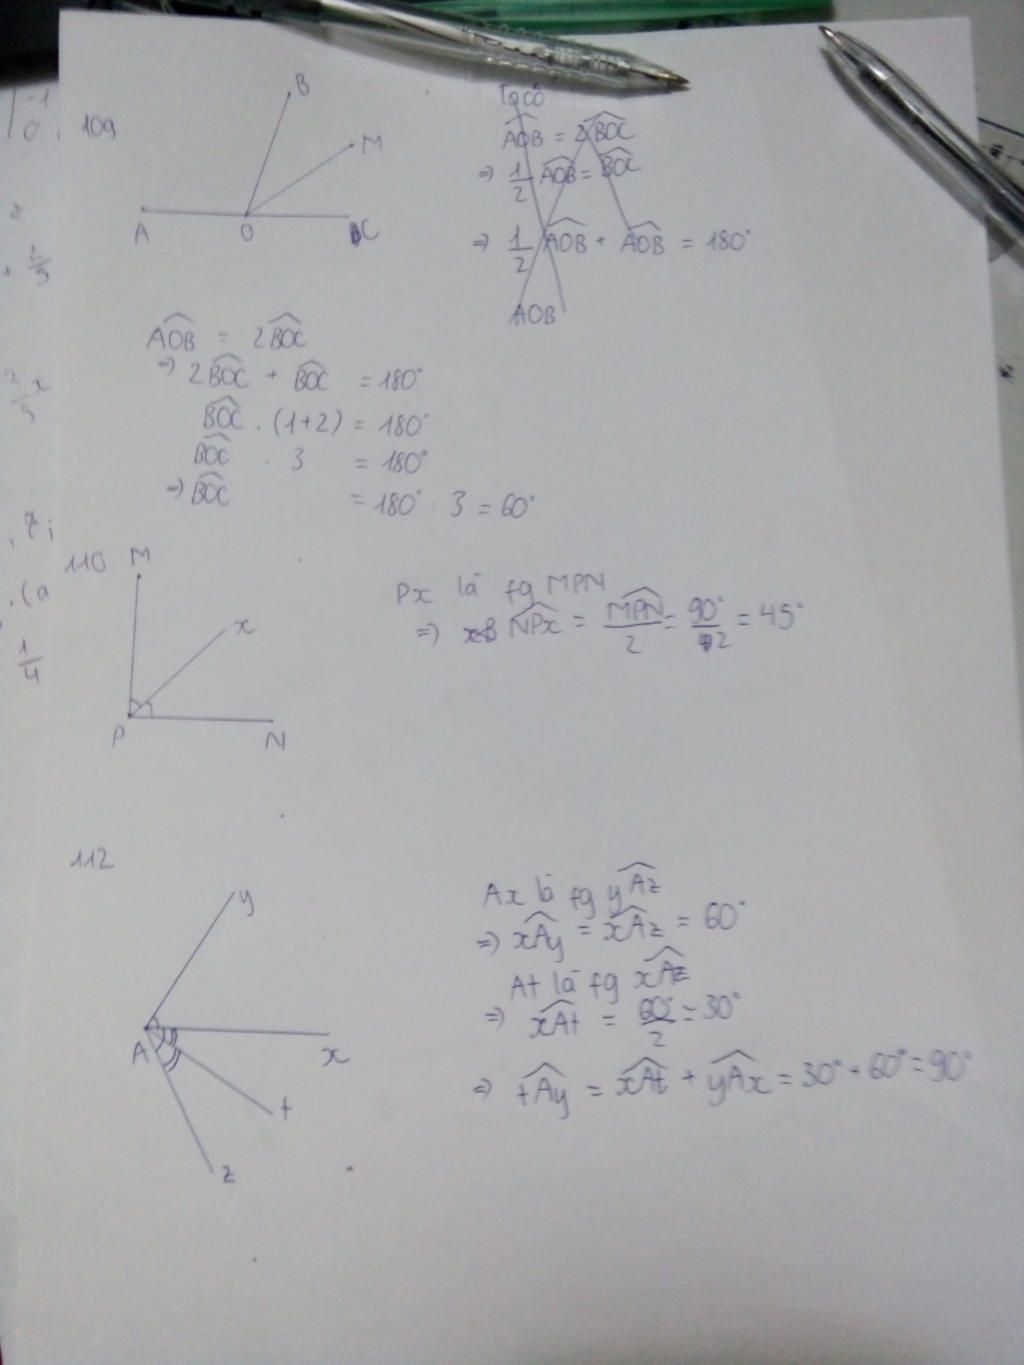 -1
0
109
B
M
A
O
C
Ta có
AOB = 2BOC
=> 1/2 AOB = BOC
=> 1/2 AOB + AOB = 180°
AOB
AOB = 2BOC
=> 2BOC + BOC = 180°
BOC . (1+2) = 180°
BOC . 3 = 180°
=> BOC = 180° : 3 = 60°
110
M
x
P
N
Px là fg MPN
=> NPx = MPN/2 = 90°/2 = 45°
(a
1/4
112
y
A
x
t
z
Ax là fg yAz
=> xAy = xAz = 60°
At là fg xAz
=> xAt = 60°/2 = 30°
=> tAy = xAt + yAx = 30° + 60° = 90°